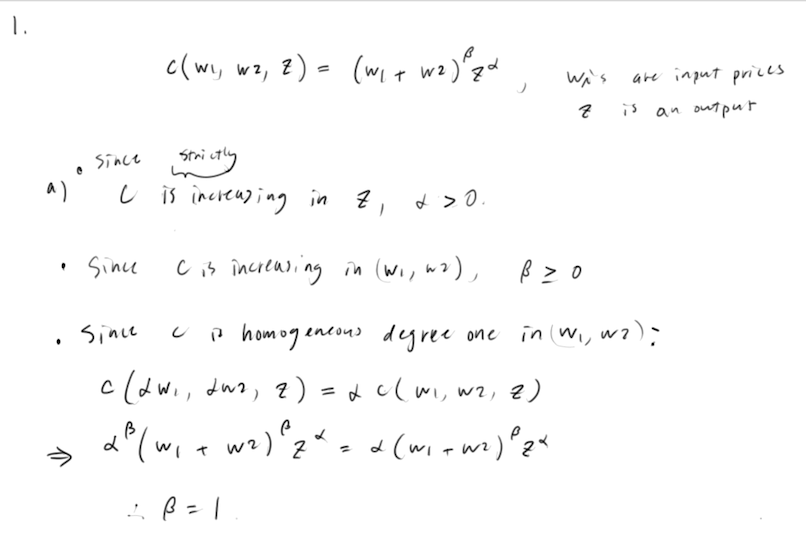 1.
c(w1, w2, z) = (w1 + w2)^β z^α , wi's are input prices
z is an output
• Since strictly
a) C is increasing in z, α > 0.
• Since C is increasing in (w1, w2), β ≥ 0
• Since C is homogeneous degree one in (w1, w2):
c(αw1, αw2, z) = α c(w1, w2, z)
⇒ α^β (w1 + w2)^β z^α = α (w1 + w2)^β z^α
∴ β = 1